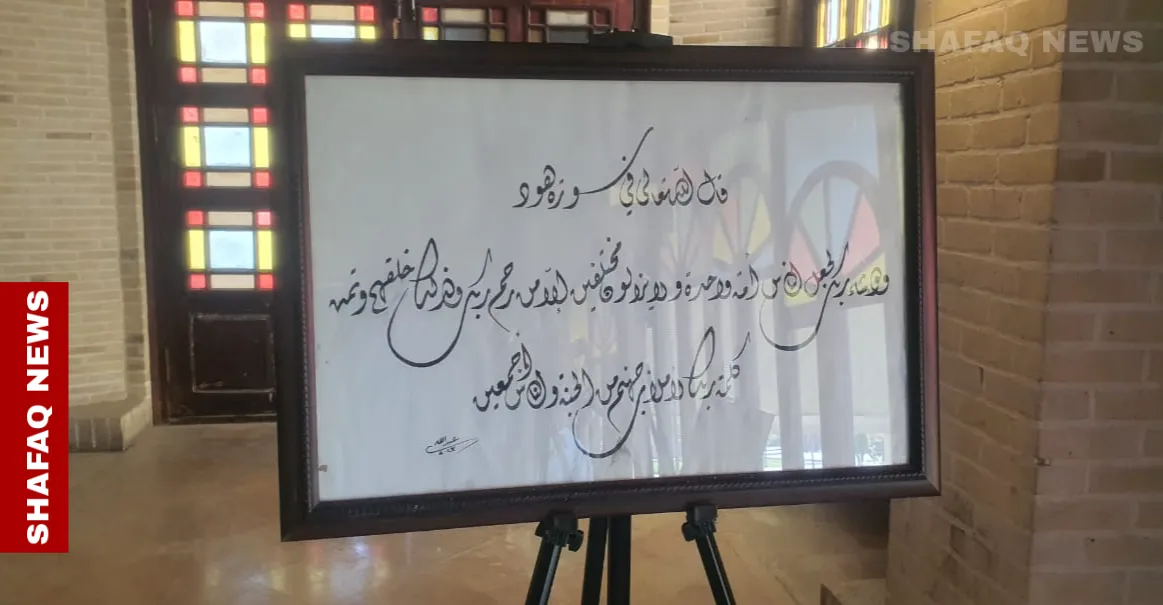 SHAFAQ NEWS
قال الله تعالى في سورة هود
ولو شاء ربك لجعل الناس أمة واحدة ولا يزالون مختلفين إلا من رحم ربك ولذلك خلقهم وتمت
كلمة ربك لأملأن جهنم من الجنة والناس أجمعين
عبد الله
SHAFAQ NEWS